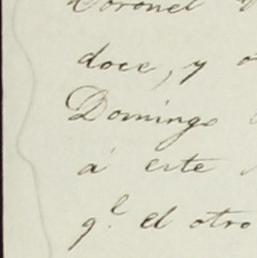 Coronel
doce, y
Domingo
á este
q.<sup>l</sup> el otro